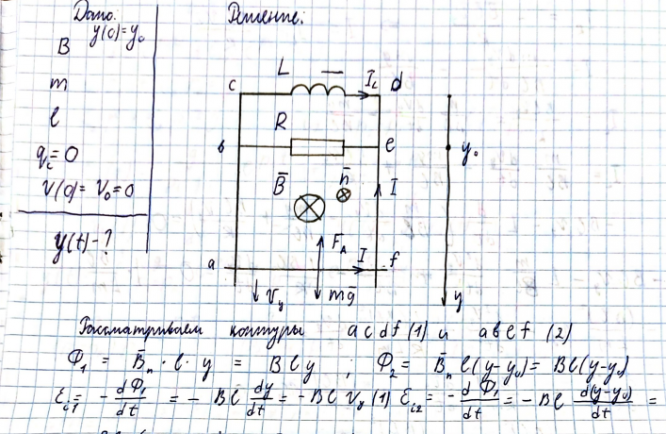 Дано: Решение:
y(0)=y₀
B
m
l
q_c=0
V(0)=V₀=0
y(t)-?
c L I_L d
R
b e y₀
B̅ n̅
I
F_A I
a f
V_y mg̅ y
Рассматриваем контуры acdf (1) и abef (2)
Φ₁ = B̅ₙ·l·y = Bly ; Φ₂ = B̅ₙ l(y-y₀) = Bl(y-y₀)
Ɛ_i1 = -dΦ₁/dt = -Bl dy/dt = -Bl V_y (1) Ɛ_i2 = -dΦ₁/dt = -Bl d(y-y₀)/dt =